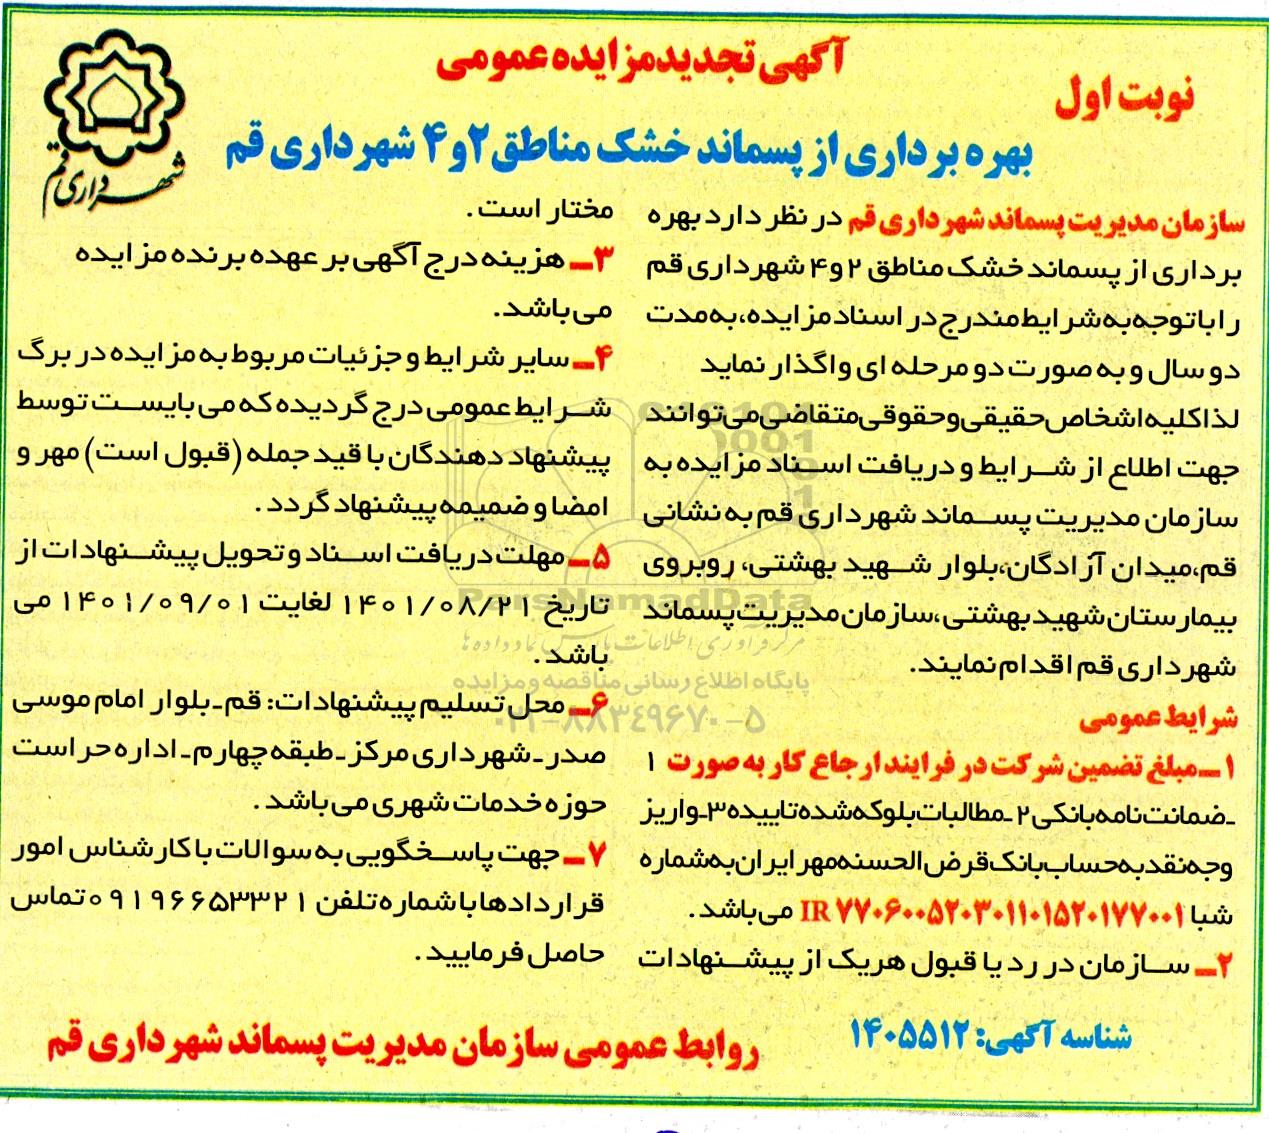 شهرداری قم
نوبت اول
آگهی تجدید مزایده عمومی
بهره برداری از پسماند خشک مناطق ۲ و ۴ شهرداری قم
سازمان مدیریت پسماند شهرداری قم در نظر دارد بهره
برداری از پسماند خشک مناطق ۲ و ۴ شهرداری قم
را با توجه به شرایط مندرج در اسناد مزایده، به مدت
دو سال و به صورت دو مرحله ای واگذار نماید
لذا کلیه اشخاص حقیقی و حقوقی متقاضی می‌توانند
جهت اطلاع از شرایط و دریافت اسناد مزایده به
سازمان مدیریت پسماند شهرداری قم به نشانی
قم، میدان آزادگان، بلوار شهید بهشتی، روبروی
بیمارستان شهید بهشتی، سازمان مدیریت پسماند
شهرداری قم اقدام نمایند.
شرایط عمومی
۱ـ مبلغ تضمین شرکت در فرایند ارجاع کار به صورت ۱
ـ ضمانت نامه بانکی ۲ـ مطالبات بلوکه شده تاییده ۳ـ واریز
وجه نقد به حساب بانک قرض الحسنه مهر ایران به شماره
شبا IR ۷۷۰۶۰۰۵۲۰۳۰۱۱۰۱۵۲۰۱۷۷۰۰۱ می‌باشد.
۲ـ سازمان در رد یا قبول هریک از پیشنهادات
مختار است.
۳ـ هزینه درج آگهی بر عهده برنده مزایده
می‌باشد.
۴ـ سایر شرایط و جزئیات مربوط به مزایده در برگ
شرایط عمومی درج گردیده که می بایست توسط
پیشنهاد دهندگان با قید جمله (قبول است) مهر و
امضا و ضمیمه پیشنهاد گردد.
۵ـ مهلت دریافت اسناد و تحویل پیشنهادات از
تاریخ ۱۴۰۱/۰۸/۲۱ لغایت ۱۴۰۱/۰۹/۰۱ می
باشد.
۶ـ محل تسلیم پیشنهادات: قم ـ بلوار امام موسی
صدر ـ شهرداری مرکز ـ طبقه چهارم ـ اداره حراست
حوزه خدمات شهری می باشد.
۷ـ جهت پاسخگویی به سوالات با کارشناس امور
قراردادها با شماره تلفن ۰۹۱۹۶۶۵۳۳۲۱ تماس
حاصل فرمایید.
شناسه آگهی: ۱۴۰۵۵۱۲
روابط عمومی سازمان مدیریت پسماند شهرداری قم
ParsNamadData
مرکز فرآوری اطلاعات پارس نماد داده ها
پایگاه اطلاع رسانی مناقصه و مزایده
۰۲۱-۸۸۳۴۹۶۷۰-۵